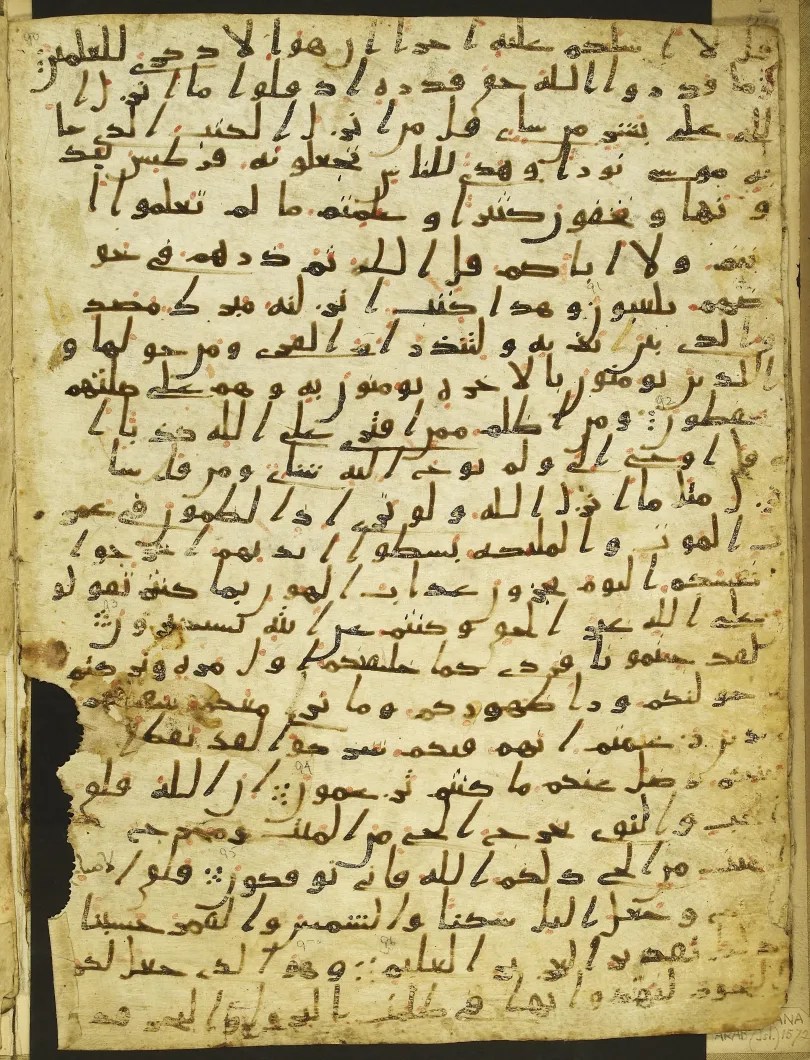 قل لا اسلكم عليه اجرا ان هو الا ذكرى للعلمين
وما قدروا الله حق قدره اذ قلوا ما انزل ا
لله على بشر من شاى قل من انزل الكتب الذى جا
به موسى نورا وهدى للناس تجعلونه قرطيس تبد
ونها وتخفون كثيرا وعلمتم ما لم تعلموا ا
نتم ولا اباكم قل الله ثم ذرهم فى خو
ضهم يلعبون وهذا كتب انزلنه مبرك مصد
ق الذى بين يديه ولتنذر ام القرى ومن حولها و
الذين يومنون بالاخرة يومنون به وهم على صلتهم
يحفظون ومن اظلم ممن افترى على الله كذبا ا
و قل اوحى الى ولم يوح اليه شاى ومن قل سا
نزل مثل ما انزل الله ولو ترى اذ الظلمون فى غمر
ت الموت والملئكة بسطوا ايديهم اخرجوا
انفسكم اليوم تجزون عذاب الهون بما كنتم تقولو
ن على الله غير الحق وكنتم عن ايته تستكبرون
لقد جئتمونا فردى كما خلقنكم اول مرة وتركتم
ما خولنكم ورا ظهوركم وما نرى معكم شفعاكم
الذين زعمتم انهم فيكم شركوا لقد تقطع
بينكم وضل عنكم ما كنتم تزعمون ان الله فلق
الحب والنوى يخرج الحى من الميت ومخرج
الميت من الحى ذلكم الله فانى توفكون فلق الاصبا
ح وجعل اليل سكنا والشمس والقمر حسبنا
ذلك تقدير العزيز العليم وهو الذى جعل لكم
النجوم لتهتدوا بها فى ظلمت البر والبحر قد